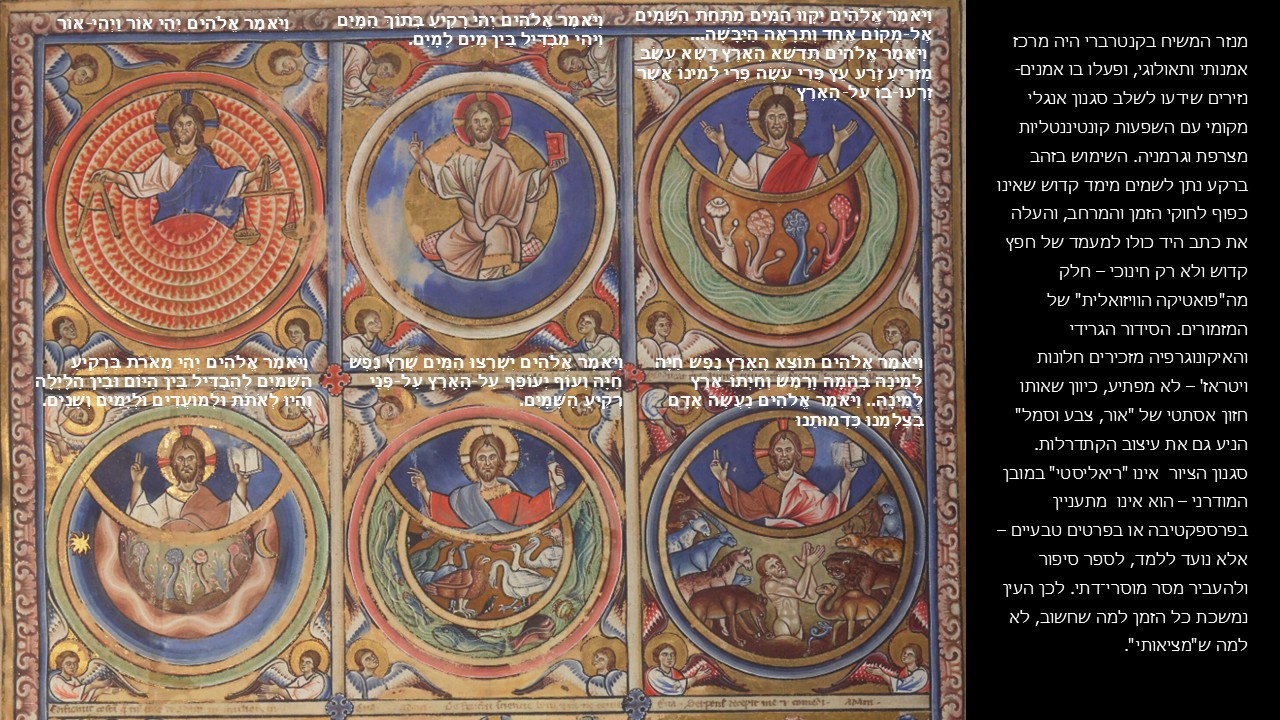 וַיֹּאמֶר אֱלֹהִים יְהִי אוֹר וַיְהִי-אוֹר
וַיֹּאמֶר אֱלֹהִים יְהִי רָקִיעַ בְּתוֹךְ הַמָּיִם
וִיהִי מַבְדִּיל בֵּין מַיִם לָמָיִם.
וַיֹּאמֶר אֱלֹהִים יִקָּווּ הַמַּיִם מִתַּחַת הַשָּׁמַיִם
אֶל-מָקוֹם אֶחָד וְתֵרָאֶה הַיַּבָּשָׁה...
וַיֹּאמֶר אֱלֹהִים תַּדְשֵׁא הָאָרֶץ דֶּשֶׁא עֵשֶׂב
מַזְרִיעַ זֶרַע עֵץ פְּרִי עֹשֶׂה פְּרִי לְמִינוֹ אֲשֶׁר
זַרְעוֹ-בוֹ עַל-הָאָרֶץ
וַיֹּאמֶר אֱלֹהִים יְהִי מְאֹרֹת בִּרְקִיעַ
הַשָּׁמַיִם לְהַבְדִּיל בֵּין הַיּוֹם וּבֵין הַלָּיְלָה
וְהָיוּ לְאֹתֹת וּלְמוֹעֲדִים וּלְיָמִים וְשָׁנִים.
וַיֹּאמֶר אֱלֹהִים יִשְׁרְצוּ הַמַּיִם שֶׁרֶץ נֶפֶשׁ
חַיָּה וְעוֹף יְעוֹפֵף עַל-הָאָרֶץ עַל-פְּנֵי
רְקִיעַ הַשָּׁמָיִם.
וַיֹּאמֶר אֱלֹהִים תּוֹצֵא הָאָרֶץ נֶפֶשׁ חַיָּה
לְמִינָהּ בְּהֵמָה וָרֶמֶשׂ וְחַיְתוֹ-אֶרֶץ
לְמִינָהּ.. וַיֹּאמֶר אֱלֹהִים נַעֲשֶׂה אָדָם
בְּצַלְמֵנוּ כִּדְמוּתֵנוּ
מנזר המשיח בקנטרברי היה מרכז
אמנותי ותאולוגי, ופעלו בו אמנים-
נזירים שידעו לשלב סגנון אנגלי
מקומי עם השפעות קונטיננטליות
מצרפת וגרמניה. השימוש בזהב
ברקע נתן לשמים מימד קדוש שאינו
כפוף לחוקי הזמן והמרחב, והעלה
את כתב היד כולו למעמד של חפץ
קדוש ולא רק חינוכי – חלק
מה"פואטיקה הוויזואלית" של
המזמורים. הסידור הגרידי
והאיקונוגרפיה מזכירים חלונות
ויטראז' – לא מפתיע, כיוון שאותו
חזון אסתטי של "אור, צבע וסמל"
הניע גם את עיצוב הקתדרלות.
סגנון הציור  אינו "ריאליסטי" במובן
המודרני – הוא אינו  מתעניין
בפרספקטיבה או בפרטים טבעיים –
אלא נועד ללמד, לספר סיפור
ולהעביר מסר מוסרי־דתי. לכן העין
נמשכת כל הזמן למה שחשוב, לא
למה ש"מציאותי".